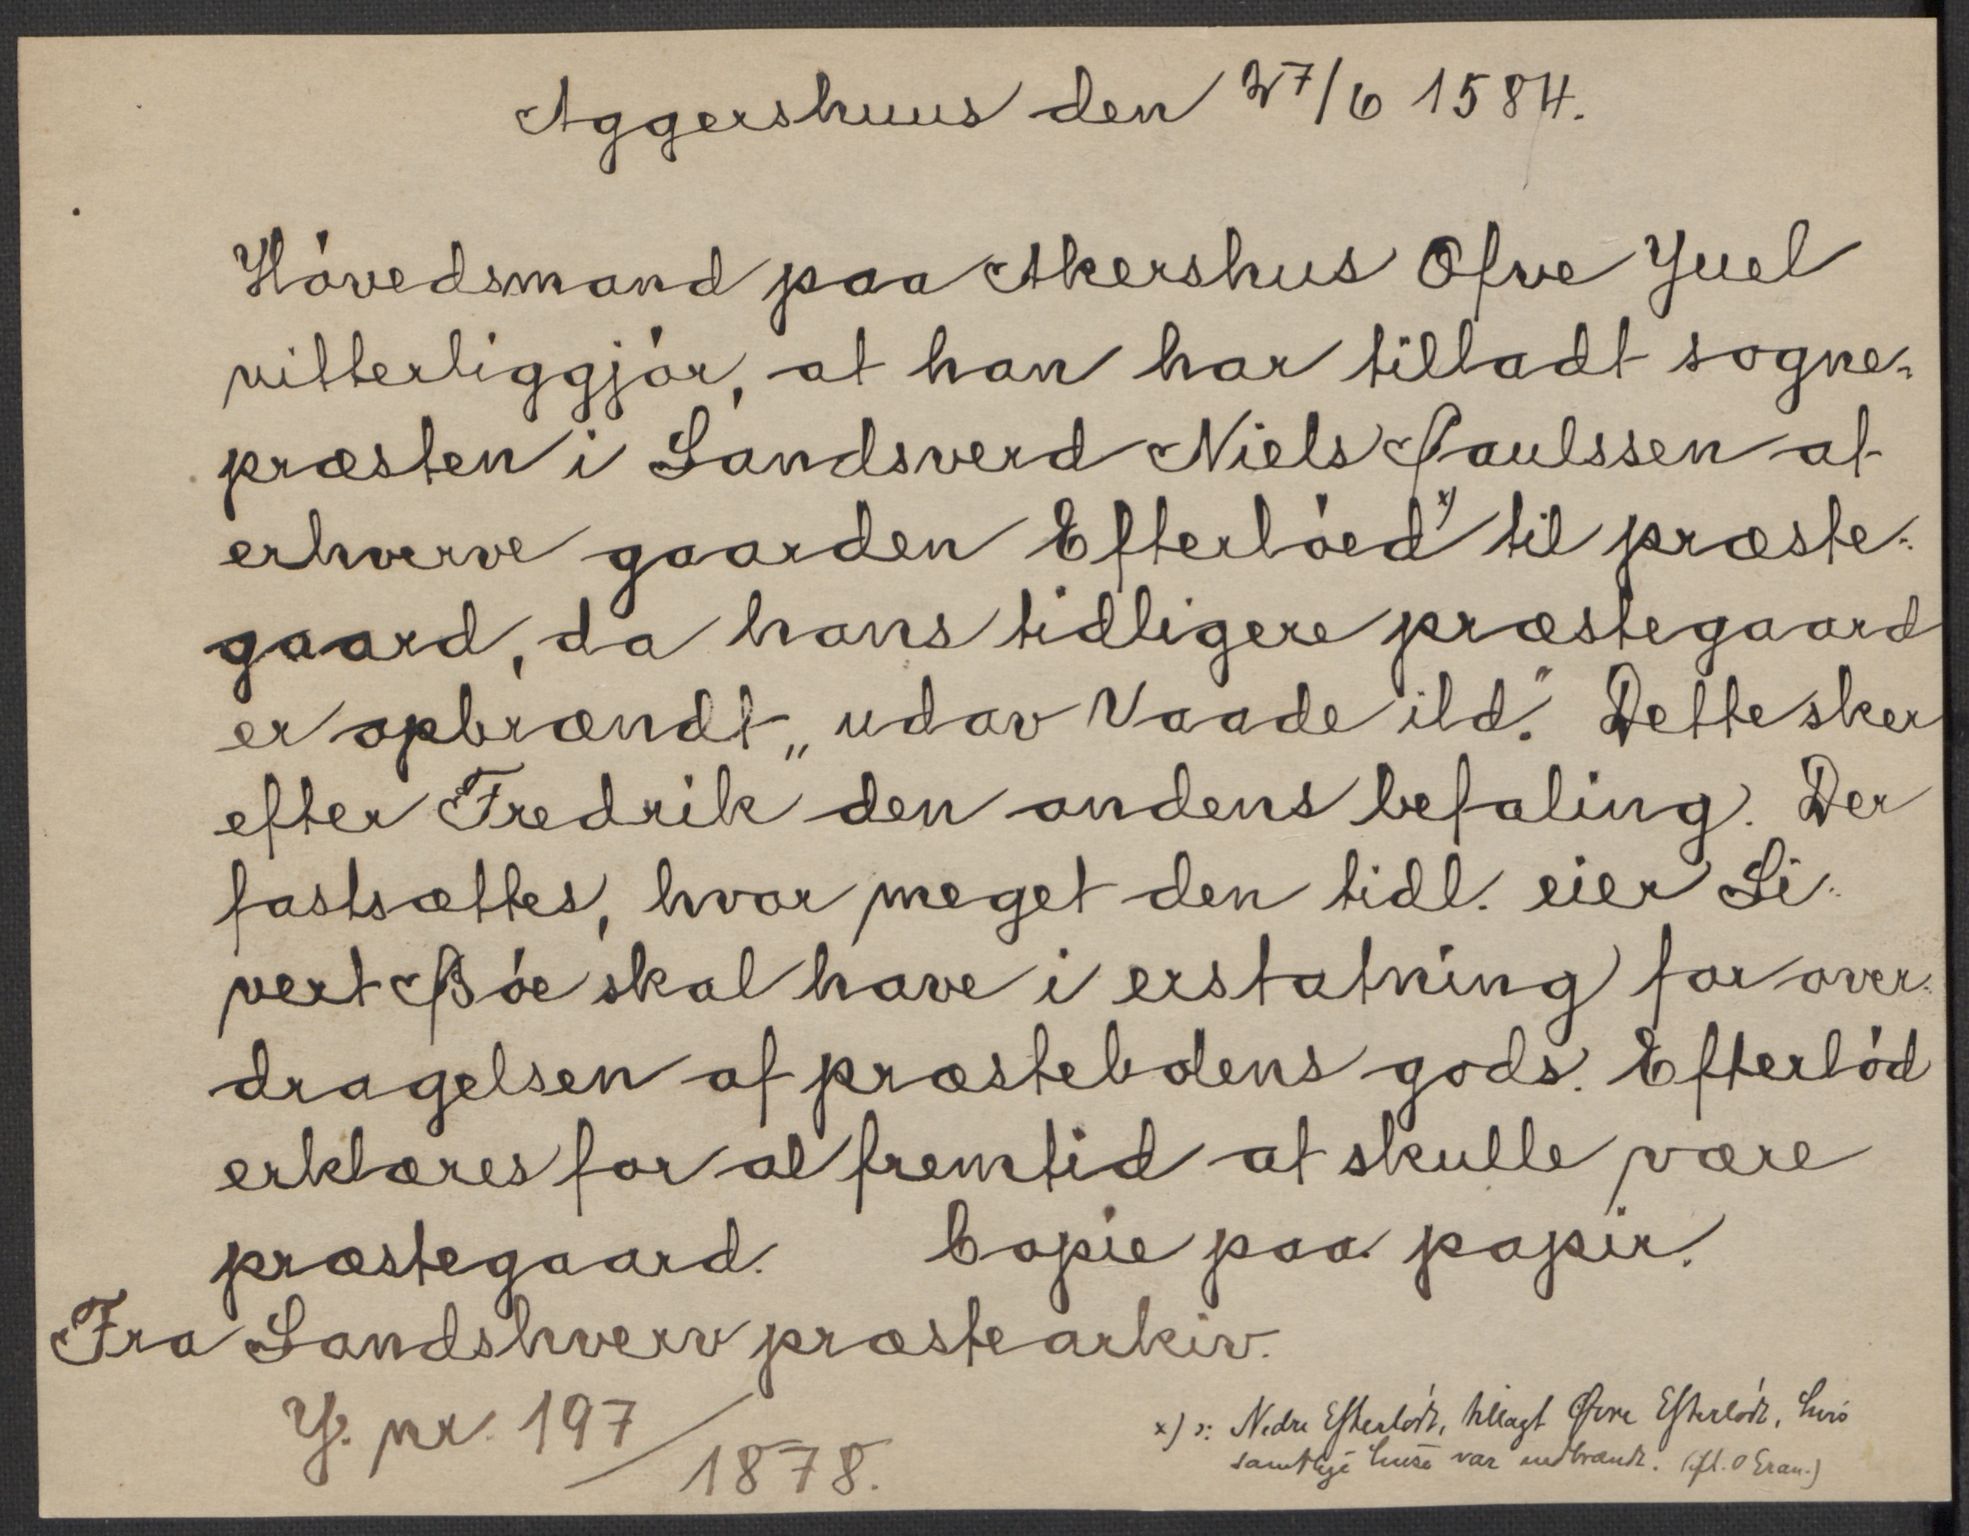 Aggershuus den 27/6 1584.
Hóvedsmand paa Akershus Ofve Juel
vitterliggjór, at han har tilladt sogne-
præsten i Sandsverd Niels Paulssen at
erhverve gaarden Efterlóed x) til præste-
gaard, da hans tidligere præstegaard
er opbrændt „udav Vaade ild." Dette sker
efter Fredrik den andens befaling. Der
fastsættes, hvor meget den tidl. eier Si-
vert Bóe skal have i erstatning for over-
dragelsen af præstebolens gods. Efterlód
erklæres for al fremtid at skulle være
præstegaard. Copie paa papir.
Fra Sandshverv præstearkiv.
J. nr. 197/1878.
x) ɔ: Nedre Efterlöd, tillagt Øvre Efterlöd, hvis
samtlige huse var nedbrændt. (fl. O Eran.)